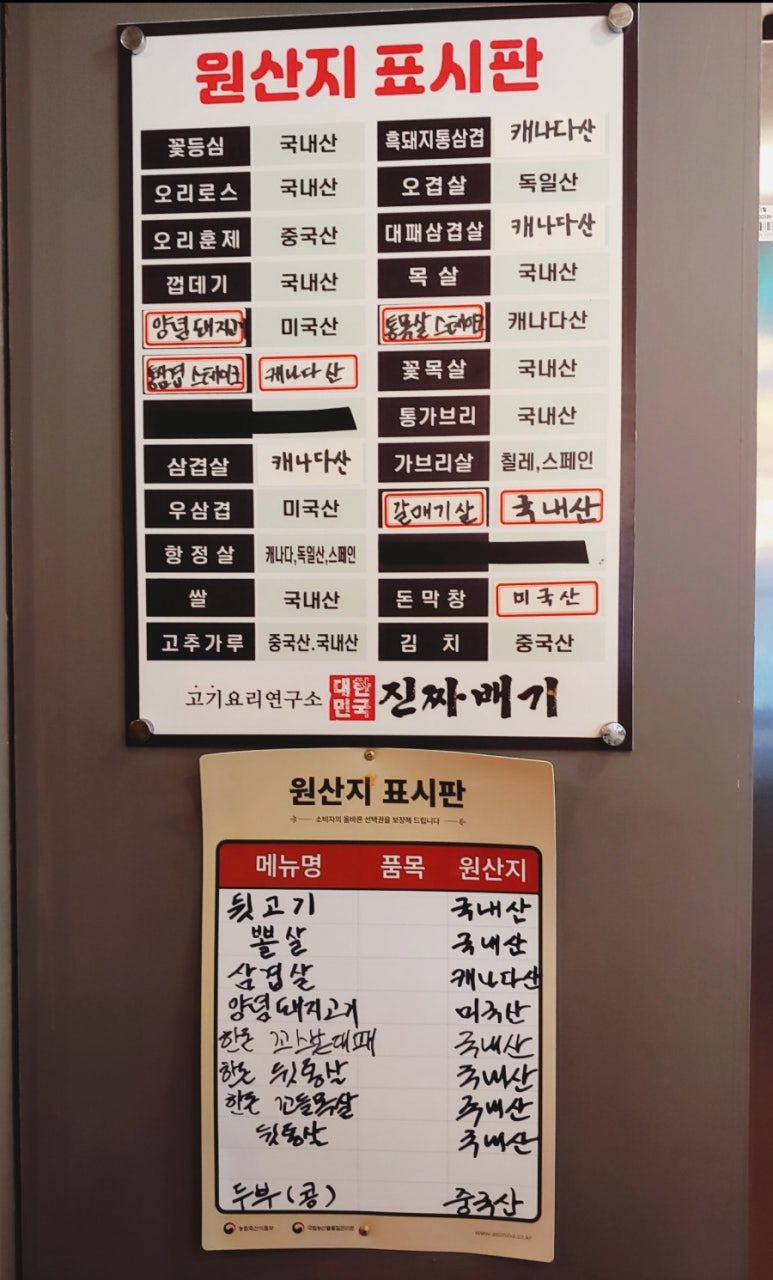 원산지 표시판
꽃등심 국내산 흑돼지통삼겹 캐나다산
오리로스 국내산 오겹살 독일산
오리훈제 중국산 대패삼겹살 캐나다산
껍데기 국내산 목살 국내산
양념돼지갈비 미국산 통목살 스테이크 캐나다산
통삼겹 스테이크 캐나다산 꽃목살 국내산
통가브리 국내산
삼겹살 캐나다산 가브리살 칠레,스페인
우삼겹 미국산 갈매기살 국내산
항정살 캐나다,독일산,스페인
쌀 국내산 돈막창 미국산
고추가루 중국산.국내산 김치 중국산
고기요리연구소 대한민국 진짜배기
원산지 표시판
소비자의 올바른 선택권을 보장해 드립니다
메뉴명 품목 원산지
뒷고기 국내산
뽈살 국내산
삼겹살 캐나다산
양념돼지고기 미국산
한돈 대패 국내산
한돈 뒷통살 국내산
한돈 꼬들목살 국내산
뒷통살 국내산
두부(콩) 중국산
농림축산식품부 국립농산물품질관리원